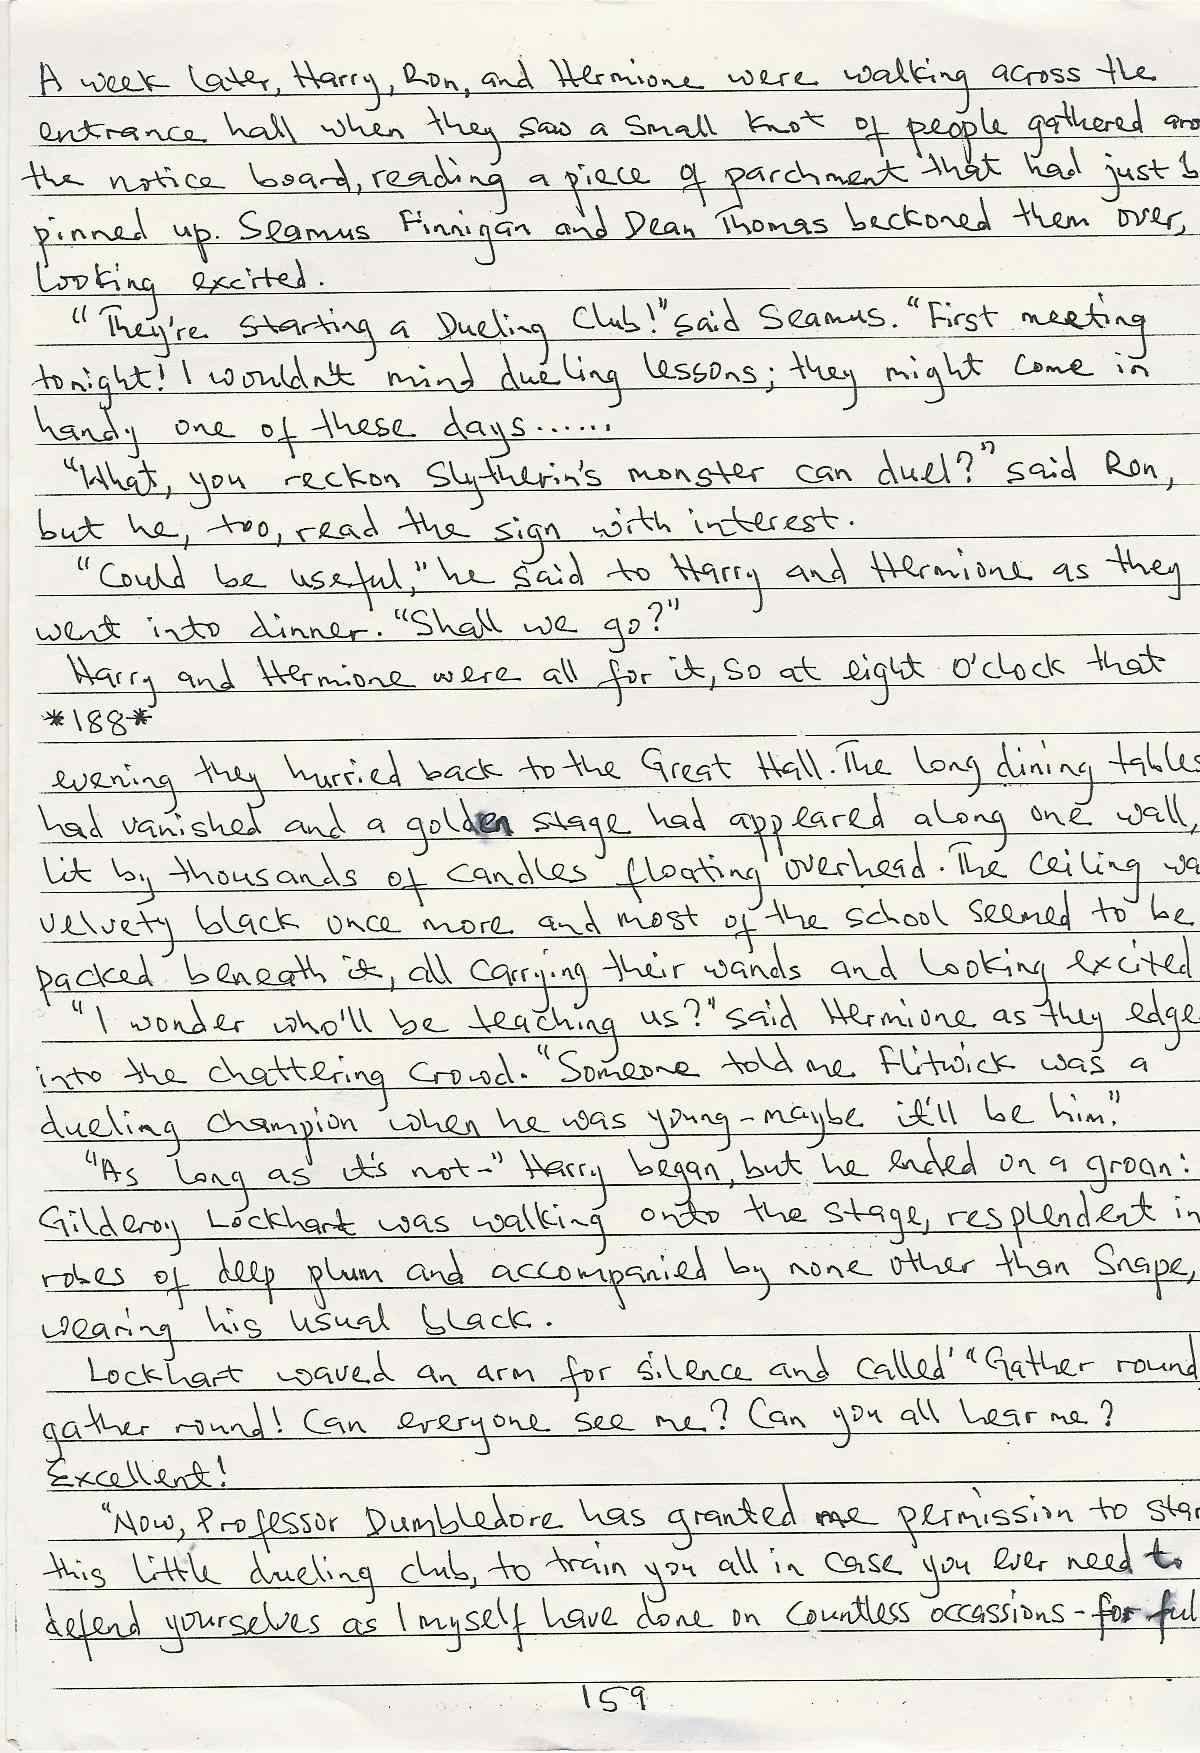 A week later, Harry, Ron, and Hermione were walking across the
entrance hall when they saw a small knot of people gathered aro
the notice board, reading a piece of parchment that had just b
pinned up. Seamus Finnigan and Dean Thomas beckoned them over,
looking excited.
"They're starting a Dueling Club!" said Seamus. "First meeting
tonight! I wouldn't mind dueling lessons; they might come in
handy one of these days......
"What, you reckon Slytherin's monster can duel?" said Ron,
but he, too, read the sign with interest.
"Could be useful," he said to Harry and Hermione as they
went into dinner. "Shall we go?"
Harry and Hermione were all for it, so at eight o'clock that
*188*
evening they hurried back to the Great Hall. The long dining tables
had vanished and a golden stage had appeared along one wall,
lit by thousands of candles floating overhead. The ceiling wa
velvety black once more and most of the school seemed to be
packed beneath it, all carrying their wands and looking excited
"I wonder who'll be teaching us?" said Hermione as they edge
into the chattering crowd. "Someone told me Flitwick was a
dueling champion when he was young - maybe it'll be him."
"As long as it's not-" Harry began, but he ended on a groan:
Gilderoy Lockhart was walking onto the stage, resplendent in
robes of deep plum and accompanied by none other than Snape,
wearing his usual black.
Lockhart waved an arm for silence and called' "Gather round
gather round! Can everyone see me? Can you all hear me?
Excellent!
"Now, Professor Dumbledore has granted me permission to star
this little dueling club, to train you all in case you ever need to
defend yourselves as I myself have done on countless occassions - for ful
159